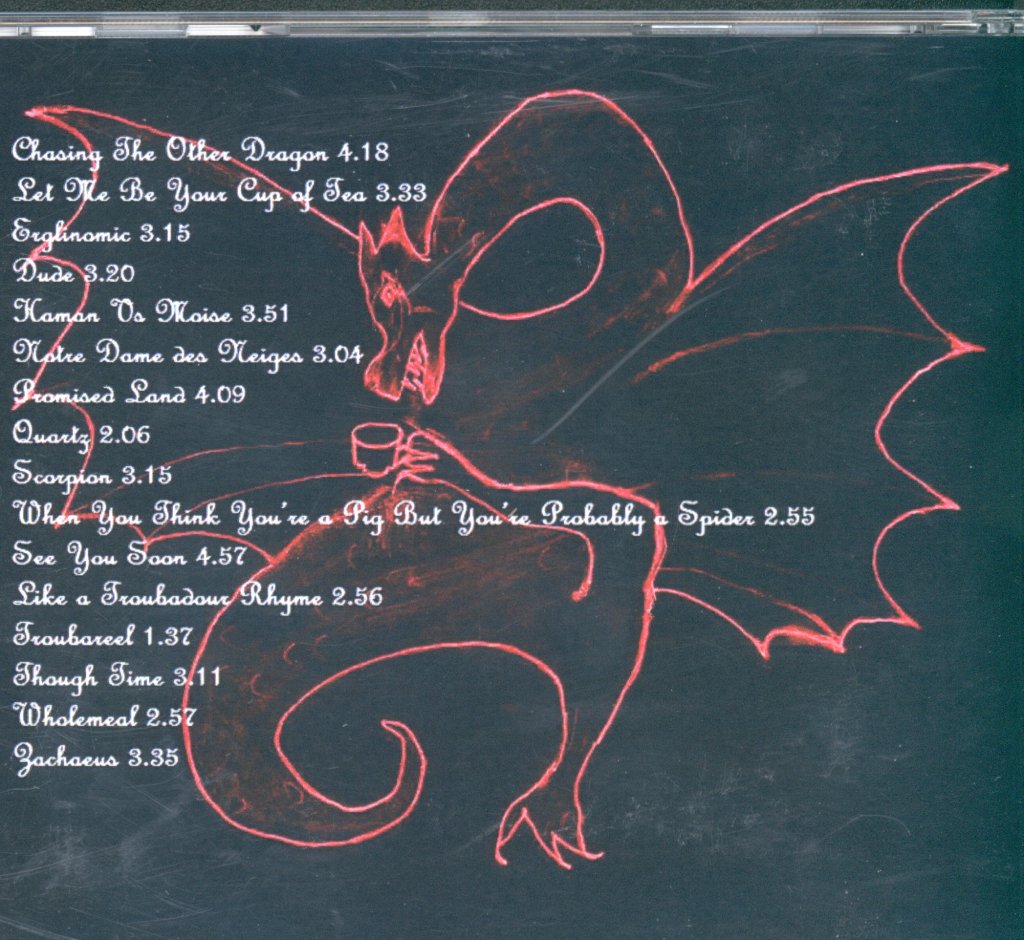 Chasing The Other Dragon 4.18
Let Me Be Your Cup of Tea 3.33
Erglinomic 3.15
Dude 3.20
Haman Vs Moise 3.51
Notre Dame des Neiges 3.04
Promised Land 4.09
Quartz 2.06
Scorpion 3.15
When You Think You're a Pig But You're Probably a Spider 2.55
See You Soon 4.57
Like a Troubadour Rhyme 2.56
Troubareel 1.37
Though Time 3.11
Wholemeal 2.57
Zachaeus 3.35